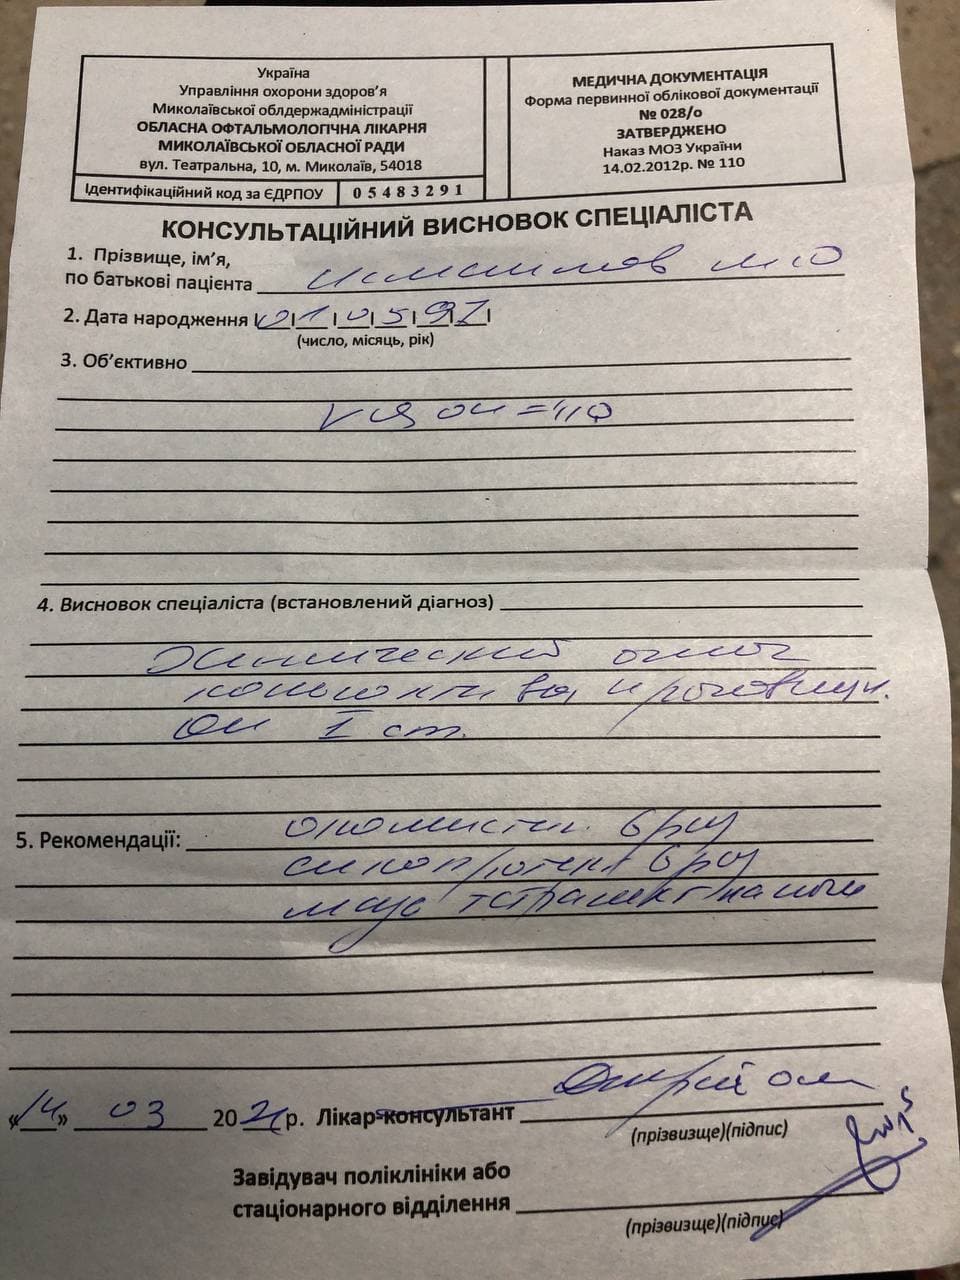 Україна
Управління охорони здоров'я
Миколаївської облдержадміністрації
ОБЛАСНА ОФТАЛЬМОЛОГІЧНА ЛІКАРНЯ
МИКОЛАЇВСЬКОЇ ОБЛАСНОЇ РАДИ
вул. Театральна, 10, м. Миколаїв, 54018
Ідентифікаційний код за ЄДРПОУ 05483291
МЕДИЧНА ДОКУМЕНТАЦІЯ
Форма первинної облікової документації
№ 028/о
ЗАТВЕРДЖЕНО
Наказ МОЗ України
14.02.2012р. № 110
КОНСУЛЬТАЦІЙНИЙ ВИСНОВОК СПЕЦІАЛІСТА
1. Прізвище, ім'я,
по батькові пацієнта
2. Дата народження 01 05 97
(число, місяць, рік)
3. Об'єктивно
4. Висновок спеціаліста (встановлений діагноз)
Химический ожог
конъюнктивы и роговицы
ОИ I ст.
5. Рекомендації: окомистин 6 р/д
6 р/д
мазь тетрациклин на ночь
«14» 03 2021 р. Лікар-консультант
(прізвизще)(підпис)
Завідувач поліклініки або
стаціонарного відділення
(прізвизще)(підпис)